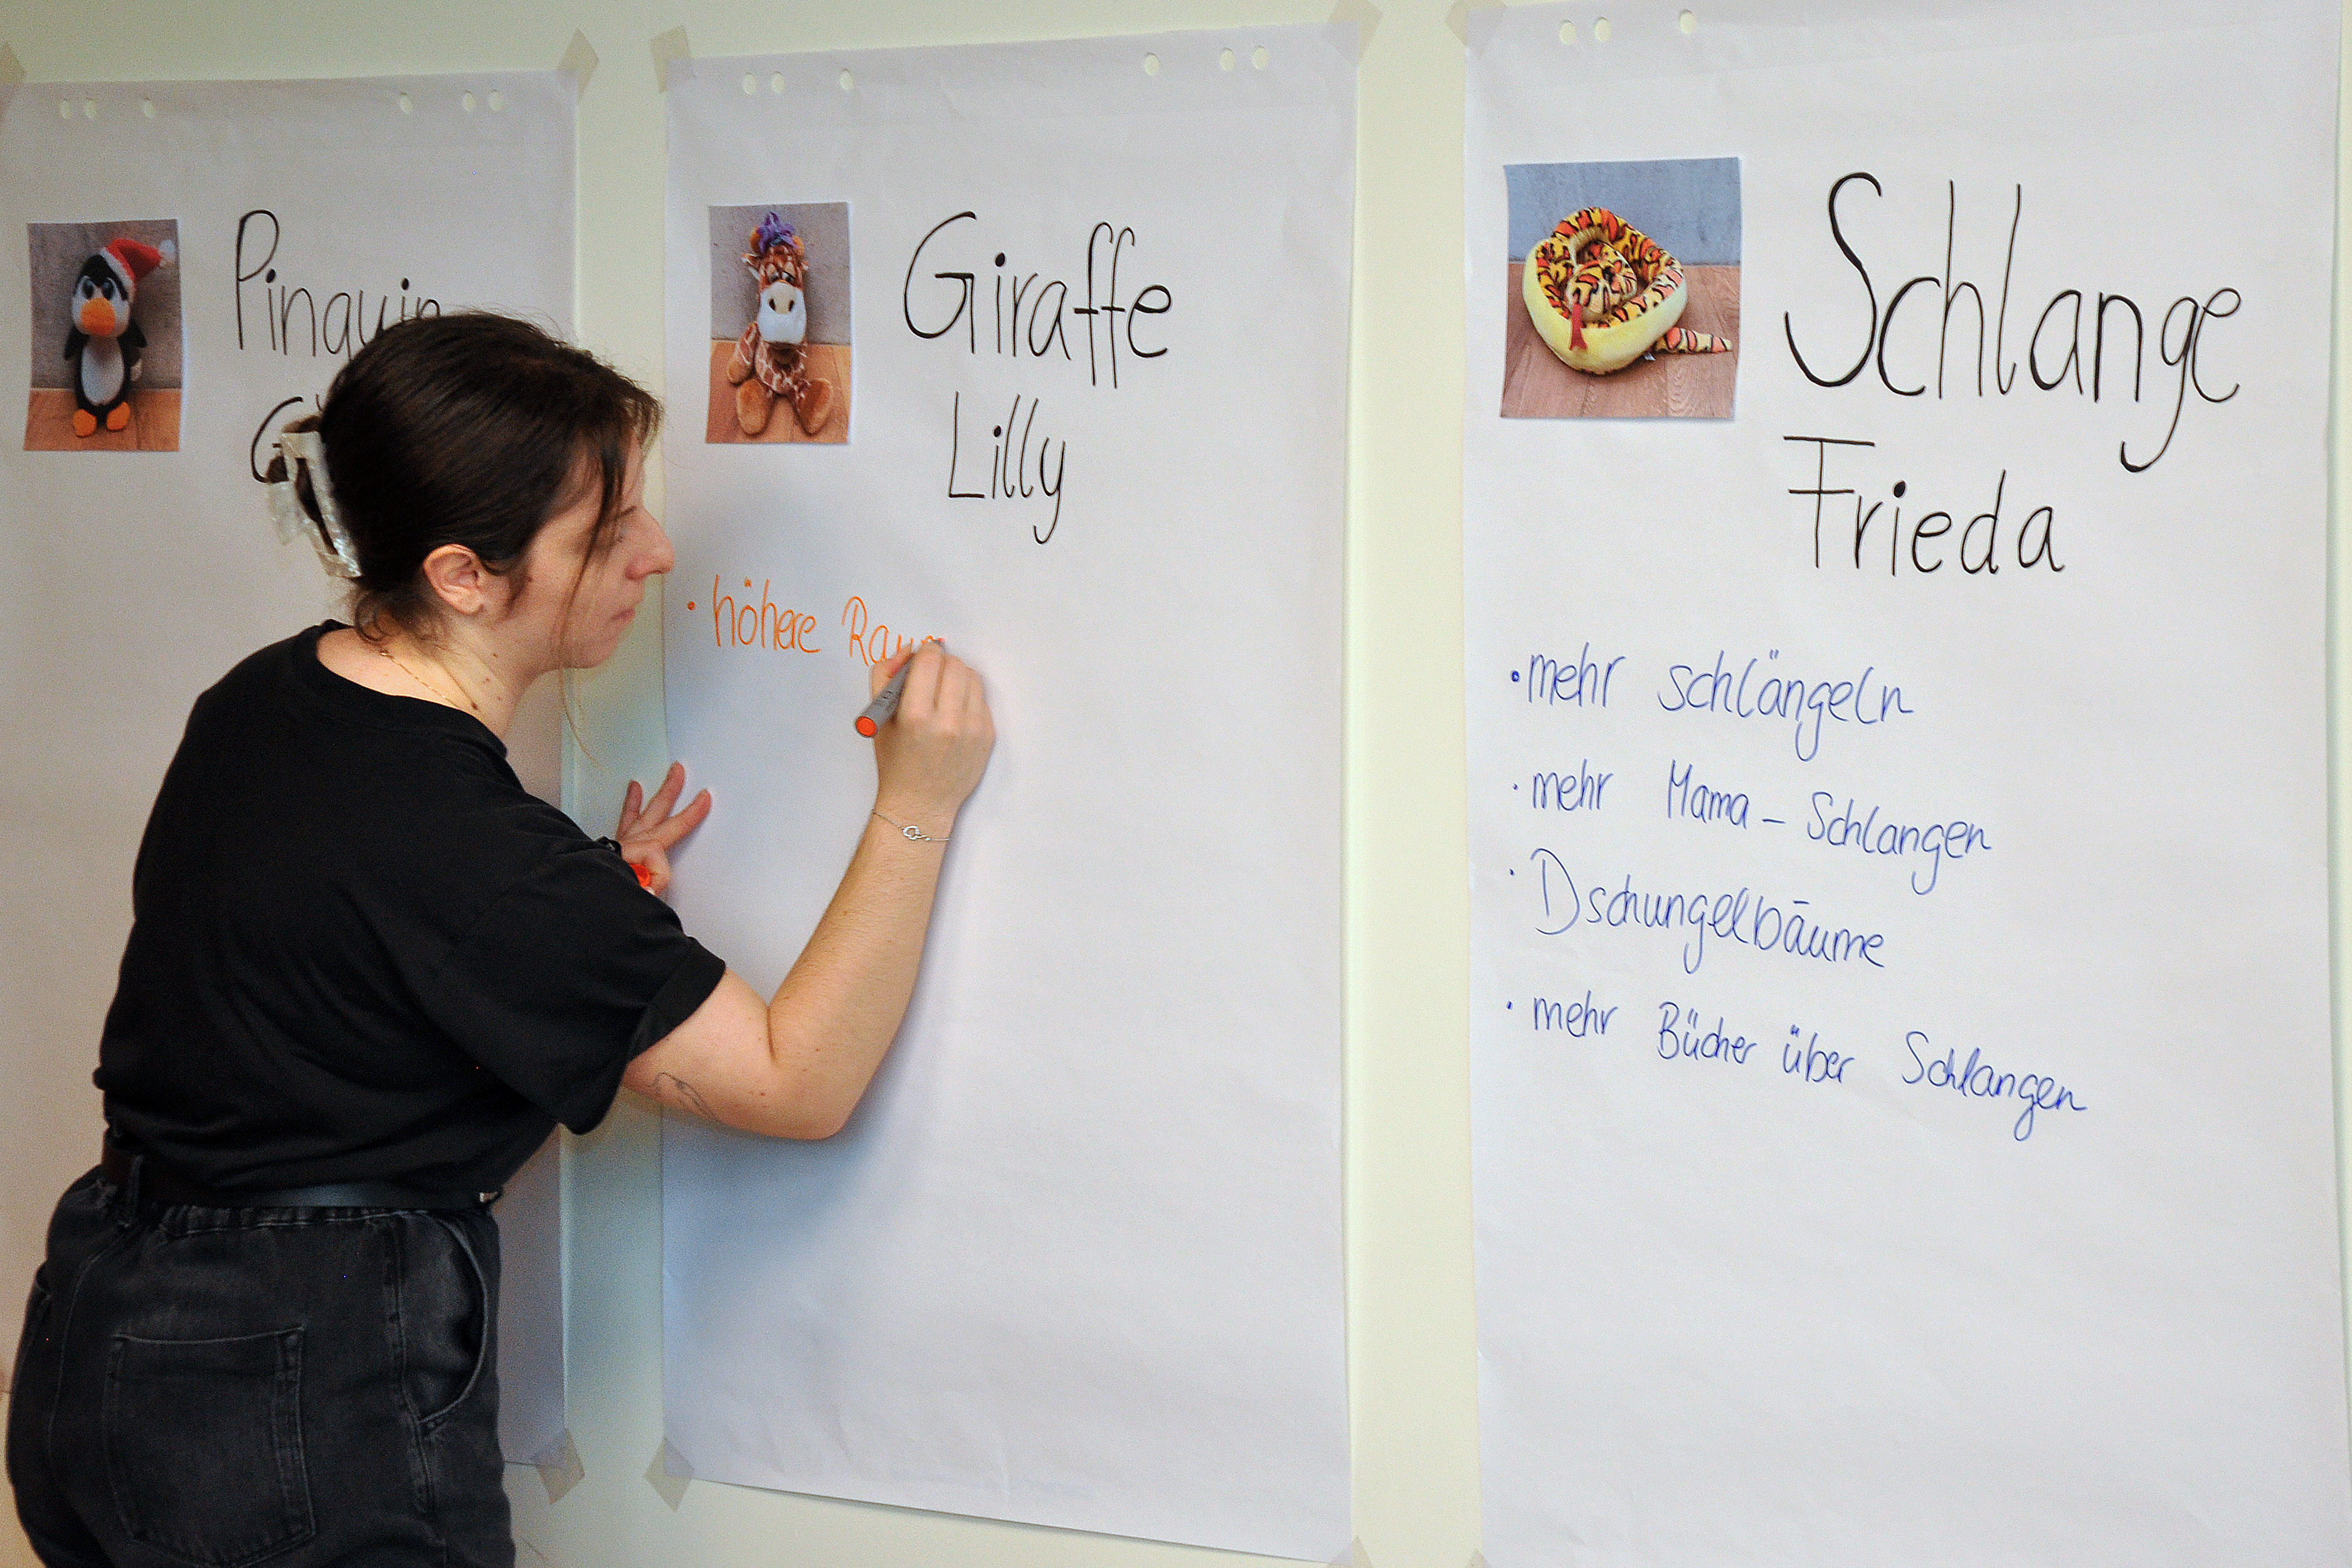 Pinguin
Giraffe
Lilly
• höhere
Schlange
Frieda
• mehr schlängeln
• mehr Mama - Schlangen
• Dschungelbäume
• mehr Bücher über Schlangen